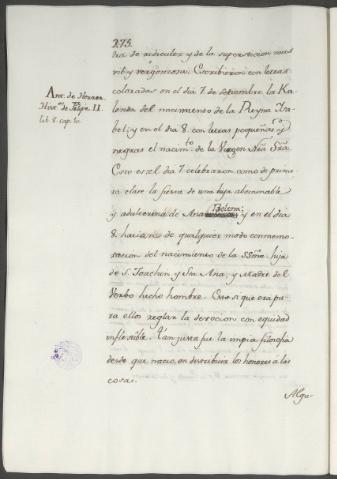 275.
dea de ridiculez y de la supersticion mas
vil y vergonzosa. Escribieron con letras
coloradas en el dia 7 de Setiembre la Ka
lenda del nacimiento de la Reyna Isa
bel; y en el dia 8. con letras pequeñas y
negras el nacim.to de la Virgen Nra Sra.
Esto es el dia 7 celebraron como de prime
ra clase la fiesta de una hija abominable
y adulterina de Ana Bolena; y en el dia
8. hacian de qualquier modo conmemo
racion del nacimiento de la SSma. hija
de S. Joachin y Sta Ana, y Madre del
Verbo hecho hombre. Esto si que era pa
ra ellos reglar la devocion con equidad
inflexible. Tan justa fue la impia filosofia
desde que nacio, en distribuir los honores á las
cosas.
Alga-
Ant. de Herrera
Hist.a de Felipe II.
lib. 8. cap. 10.